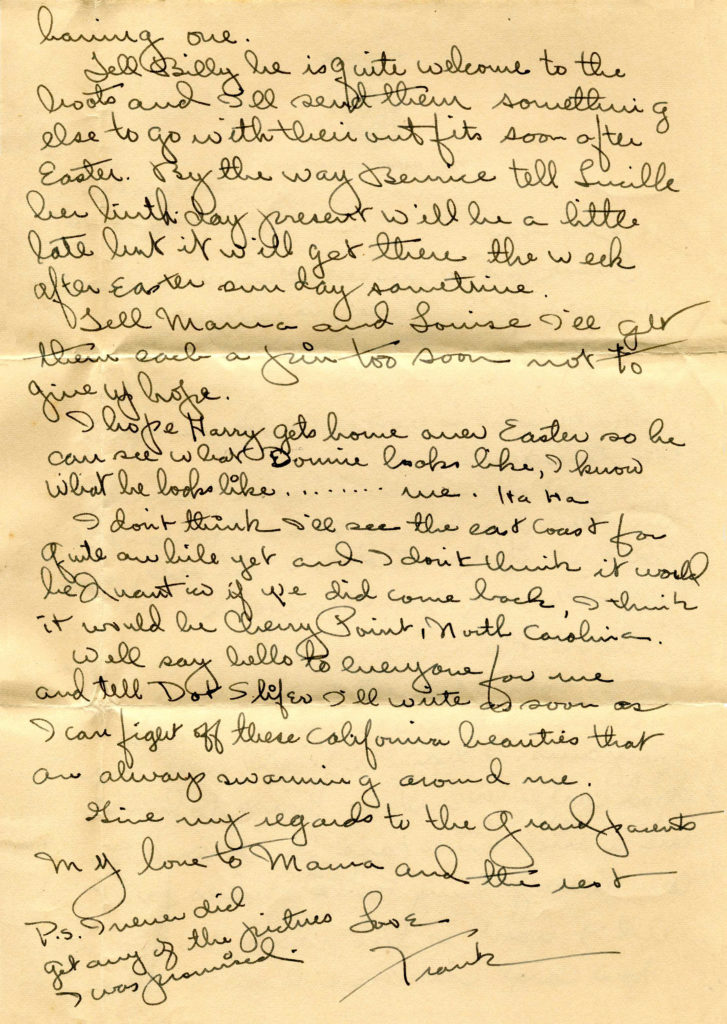 having one.
Tell Billy he is quite welcome to the
boots and I'll send them something
else to go with their outfits soon after
Easter. By the way Bernice tell Lucille
her birthday present will be a little
late but it will get there the week
after Easter sunday sometime.
Tell Mama and Louise I'll get
them each a pin too soon not to
give up hope.
I hope Harry gets home over Easter so he
can see what Donnie looks like, I know
what he looks like ........ me. Ha Ha
I don't think I'll see the east coast for
quite awhile yet and I don't think it would
be Quantico if we did come back, I think
it would be Cherry Point, North Carolina.
Well say hello to everyone for me
and tell Dot Slifer I'll write as soon as
I can fight off these California beauties that
are always swarming around me.
Give my regards to the Grandparents
My love to Mama and the rest
Love
Frank
P.s. I never did
get any of the pictures
I was promised.